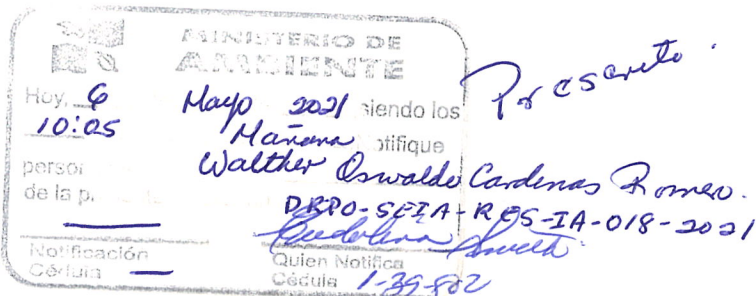 MINISTERIO DE
AMBIENTE
Por escrito.
Hoy, 6 Mayo 2021 siendo los
10:05 Mañana otifique
persor Walther Oswaldo Cardenas Romero.
de la p. DRPO-SEIA-RES-IA-018-2021
Notificación Quien Notifica
Cédula Cédula 1-39-802